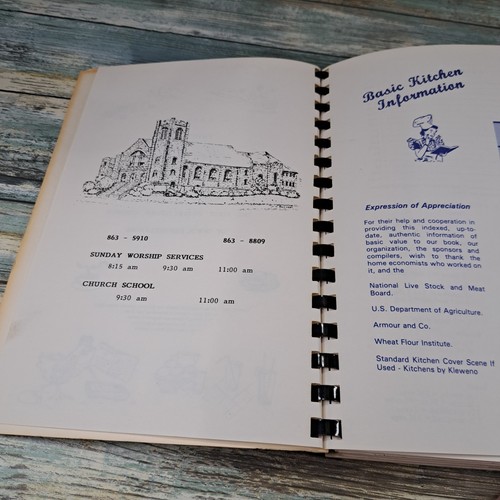 863 - 5910 863 - 8809
SUNDAY WORSHIP SERVICES
8:15 am 9:30 am 11:00 am
CHURCH SCHOOL
9:30 am 11:00 am
Basic Kitchen
Information
Expression of Appreciation
For their help and cooperation in
providing this indexed, up-to-
date, authentic information of
basic value to our book, our
organization, the sponsors and
compilers, wish to thank the
home economists who worked on
it, and the
National Live Stock and Meat
Board.
U.S. Department of Agriculture.
Armour and Co.
Wheat Flour Institute.
Standard Kitchen Cover Scene If
Used - Kitchens by Kleweno